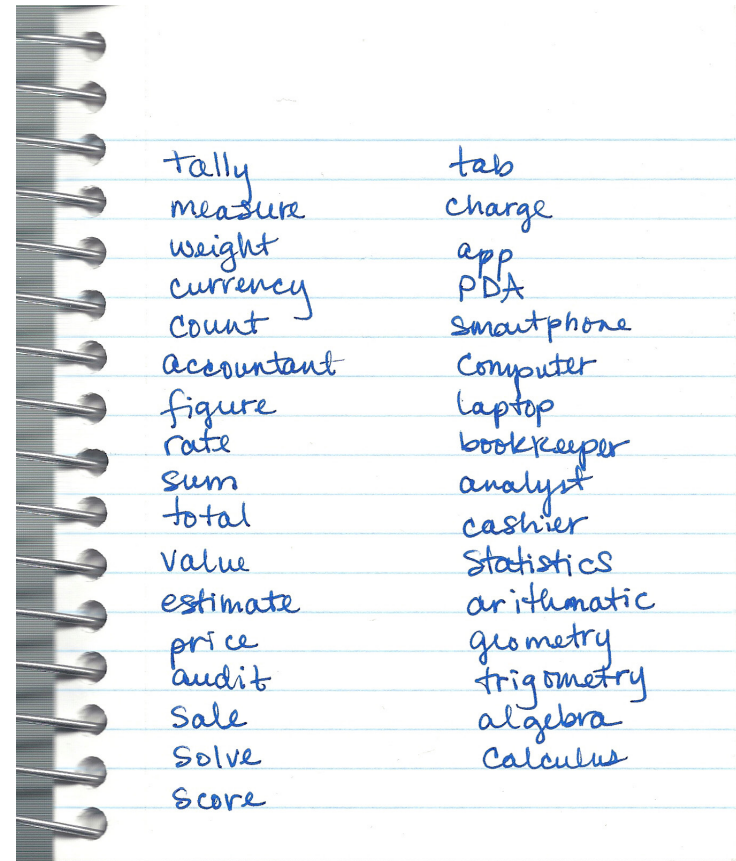 tally
measure
weight
currency
count
accountant
figure
rate
sum
total
value
estimate
price
audit
sale
solve
score
tab
charge
app
PDA
smartphone
computer
laptop
bookkeeper
analyst
cashier
statistics
arithmatic
geometry
trigometry
algebra
calculus